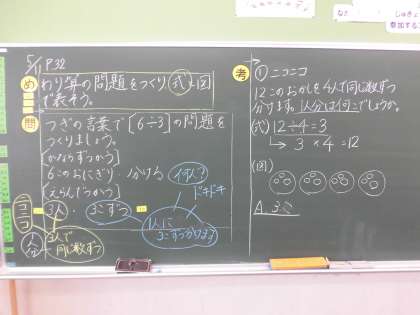 5/11 P.32
め わり算の問題をつくり、式と図
で表そう。
問 つぎの言葉で[6÷3]の問題を
つくりましょう。
[かならずつかう]
6このおにぎり・分ける
何人?
[えらんでつかう]
ドキドキ
ニコニコ
3人・3こずつ
1人分
3人で
同じ数ずつ
1人に
3こずつ分けます
考 ① ニコニコ
12このおかしを4人で同じ数ずつ
分けます。1人分は何こでしょうか。
(式) 12÷4=3
→ 3×4=12
(図)
A. 3こ